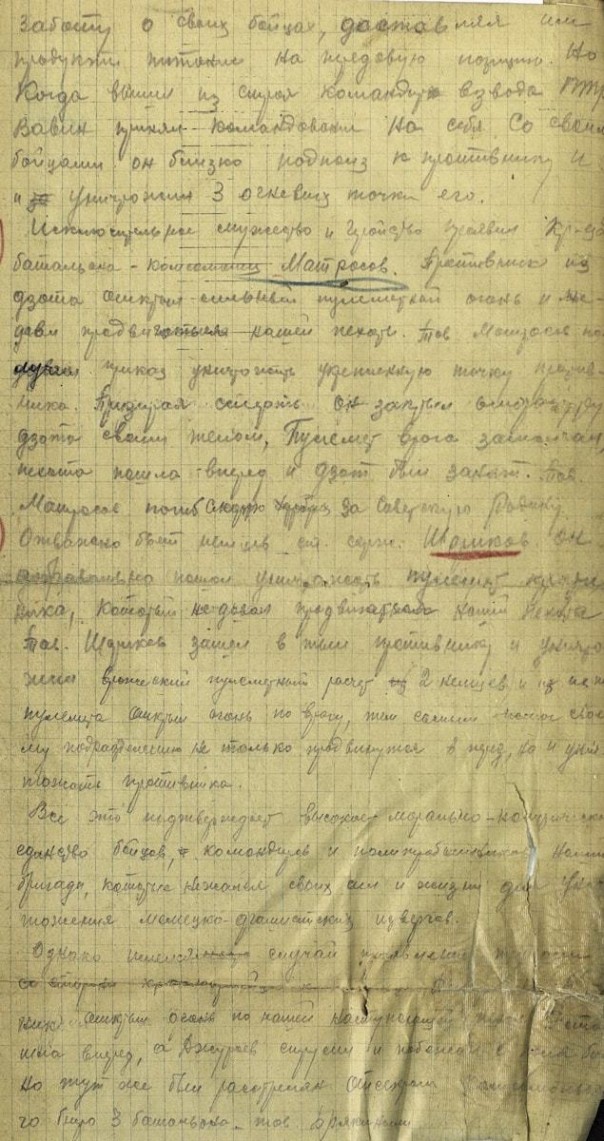 заботу о своих бойцах, доставлял им
продукты питания на передовую позицию. Но
Когда вышел из строя командир взвода ПТР
Вавин принял командование на себя. Со своими
бойцами он близко подполз к противнику и
и уничтожил 3 огневых точки его.
Исключительное мужество и геройство проявил кр-ец
батальона - комсомолец Матросов. Противник из
дзота открыл сильный пулеметный огонь и не
давал продвигаться нашей пехоте. Тов. Матросов по
лучил приказ уничтожить укрепленную точку против-
ника. Презирая смерть он закрыл амбразуру
дзота своим телом, Пулемет врага замолчал,
пехота пошла вперед и дзот был занят. Тов.
Матросов погиб смертью храбрых за Советскую Родину.
Отважно бьет немцев ст. серж. Шариков. он
пошел уничтожать пулемет против-
ника, который не давал продвигаться нашей пехоте
Тов. Шариков зашел в тыл противнику и уничто-
жил вражеский пулеметный расчет 2 немцев и из их
пулемета открыл огонь по врагу, тем самым помог свое
му подразделению не только продвинуться в перед, но и унич
тожить противника.
Все это подтверждает высокое морально-политическое
единство бойцов, командиров и политработников нашей
бригады, которые не жалея своих сил и жизни для унич
тожения немецко-фашистских извергов.
Однако имелся случай проявления трусости
со стороны красноармейца
открыл огонь по нашей наступающей пехоте
шла вперед, а Джураев струсил и побежал с поля боя
но тут же был расстрелян
го бюро 3 батальона тов